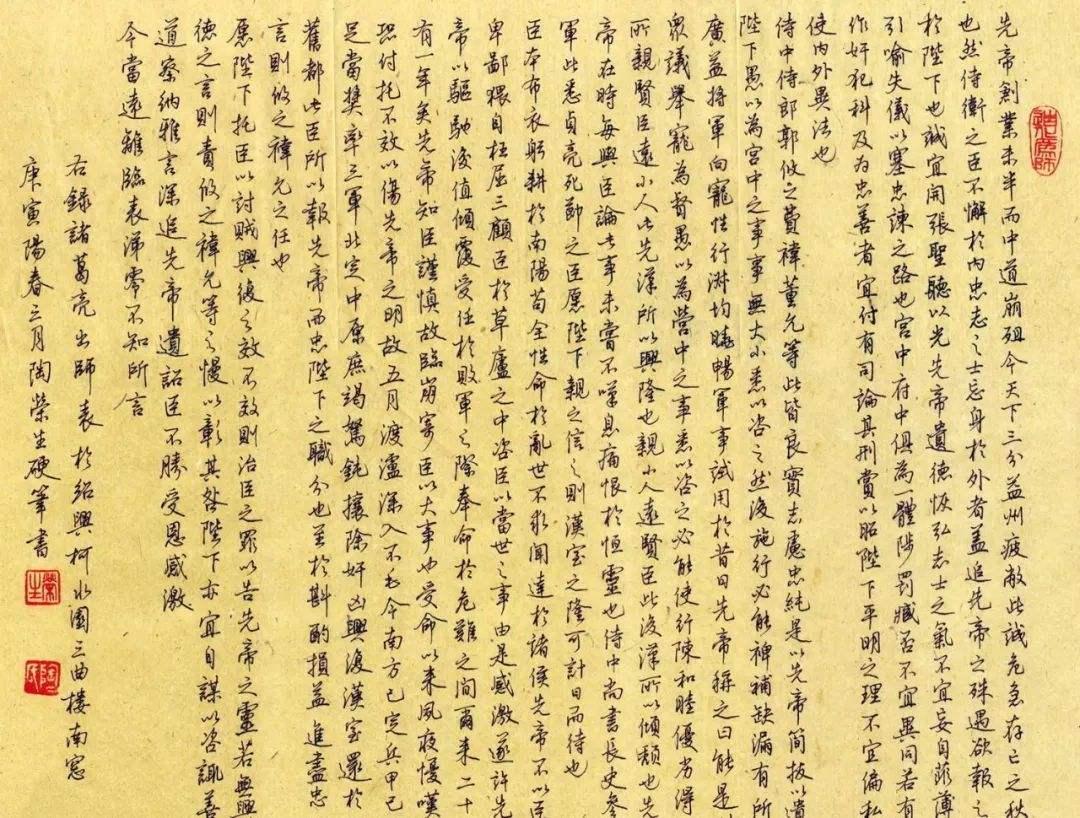 先帝創業未半而中道崩殂今天下三分益州疲敝此誠危急存亡之秋
也然侍衛之臣不懈於內忠志之士忘身於外者蓋追先帝之殊遇欲報之
於陛下也誠宜開張聖聽以光先帝遺德恢弘志士之氣不宜妄自菲薄
引喻失儀以塞忠諫之路也宮中府中俱為一體陟罰臧否不宜異同若有
作奸犯科及為忠善者宜付有司論其刑賞以昭陛下平明之理不宜偏私
使內外異法也
侍中侍郎郭攸之費禕董允等此皆良實志慮忠純是以先帝簡拔以遺
陛下愚以為宮中之事事無大小悉以咨之然後施行必能裨補缺漏有所
廣益將軍向寵性行淑均曉暢軍事試用於昔日先帝稱之曰能是
眾議舉寵為督愚以為營中之事悉以咨之必能使行陳和睦優劣得
所親賢臣遠小人此先漢所以興隆也親小人遠賢臣此後漢所以傾頹也先
帝在時每與臣論此事未嘗不嘆息痛恨於恒靈也侍中尚書長史參
軍此悉貞亮死節之臣愿陛下親之信之則漢室之隆可計日而待也
臣本布衣躬耕於南陽苟全性命於亂世不求聞達於諸侯先帝不以臣
卑鄙猥自枉屈三顧臣於草廬之中咨臣以當世之事由是感激遂許先
帝以驅馳後值傾覆受任於敗軍之際奉命於危難之間爾來二十
有一年矣先帝知臣謹慎故臨崩寄臣以大事也受命以來夙夜憂嘆
恐付托不效以傷先帝之明故五月渡瀘深入不毛今南方已定兵甲已
足當獎率三軍北定中原庶竭駑鈍攘除奸凶興復漢室還於
舊都此臣所以報先帝而忠陛下之職分也至於斟酌損益進盡忠
言則攸之禕允之任也
愿陛下托臣以討賊興復之效不效則治臣之罪以告先帝之靈若無興
德之言則責攸之禕允等之慢以彰其咎陛下亦宜自謀以咨諏善
道察納雅言深追先帝遺詔臣不勝受恩感激
今當遠離臨表涕零不知所言
右錄諸葛亮出師表於紹興柯水園三曲樓南窓
庚寅陽春三月陶榮生硬筆書
榮生
陶氏